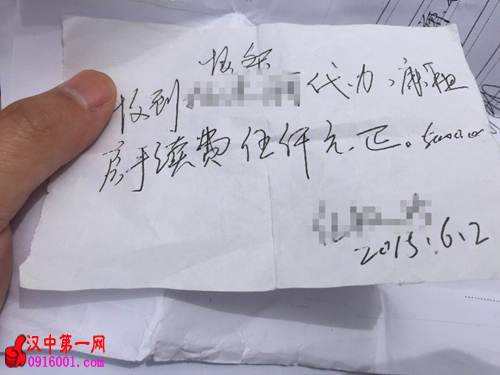 收到 代办、廉租
房手续费伍仟元正。5000.00
2015.6.2
汉中第一网
0916001.com